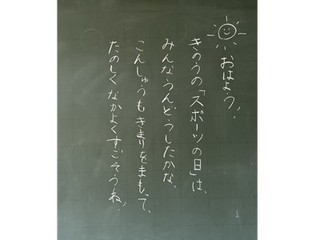 おはよう!
きのうの「スポーツの日」は、
みんなうんどうしたかな、
こんしゅうもきまりをまもって、
たのしくなかよくすごそうね!